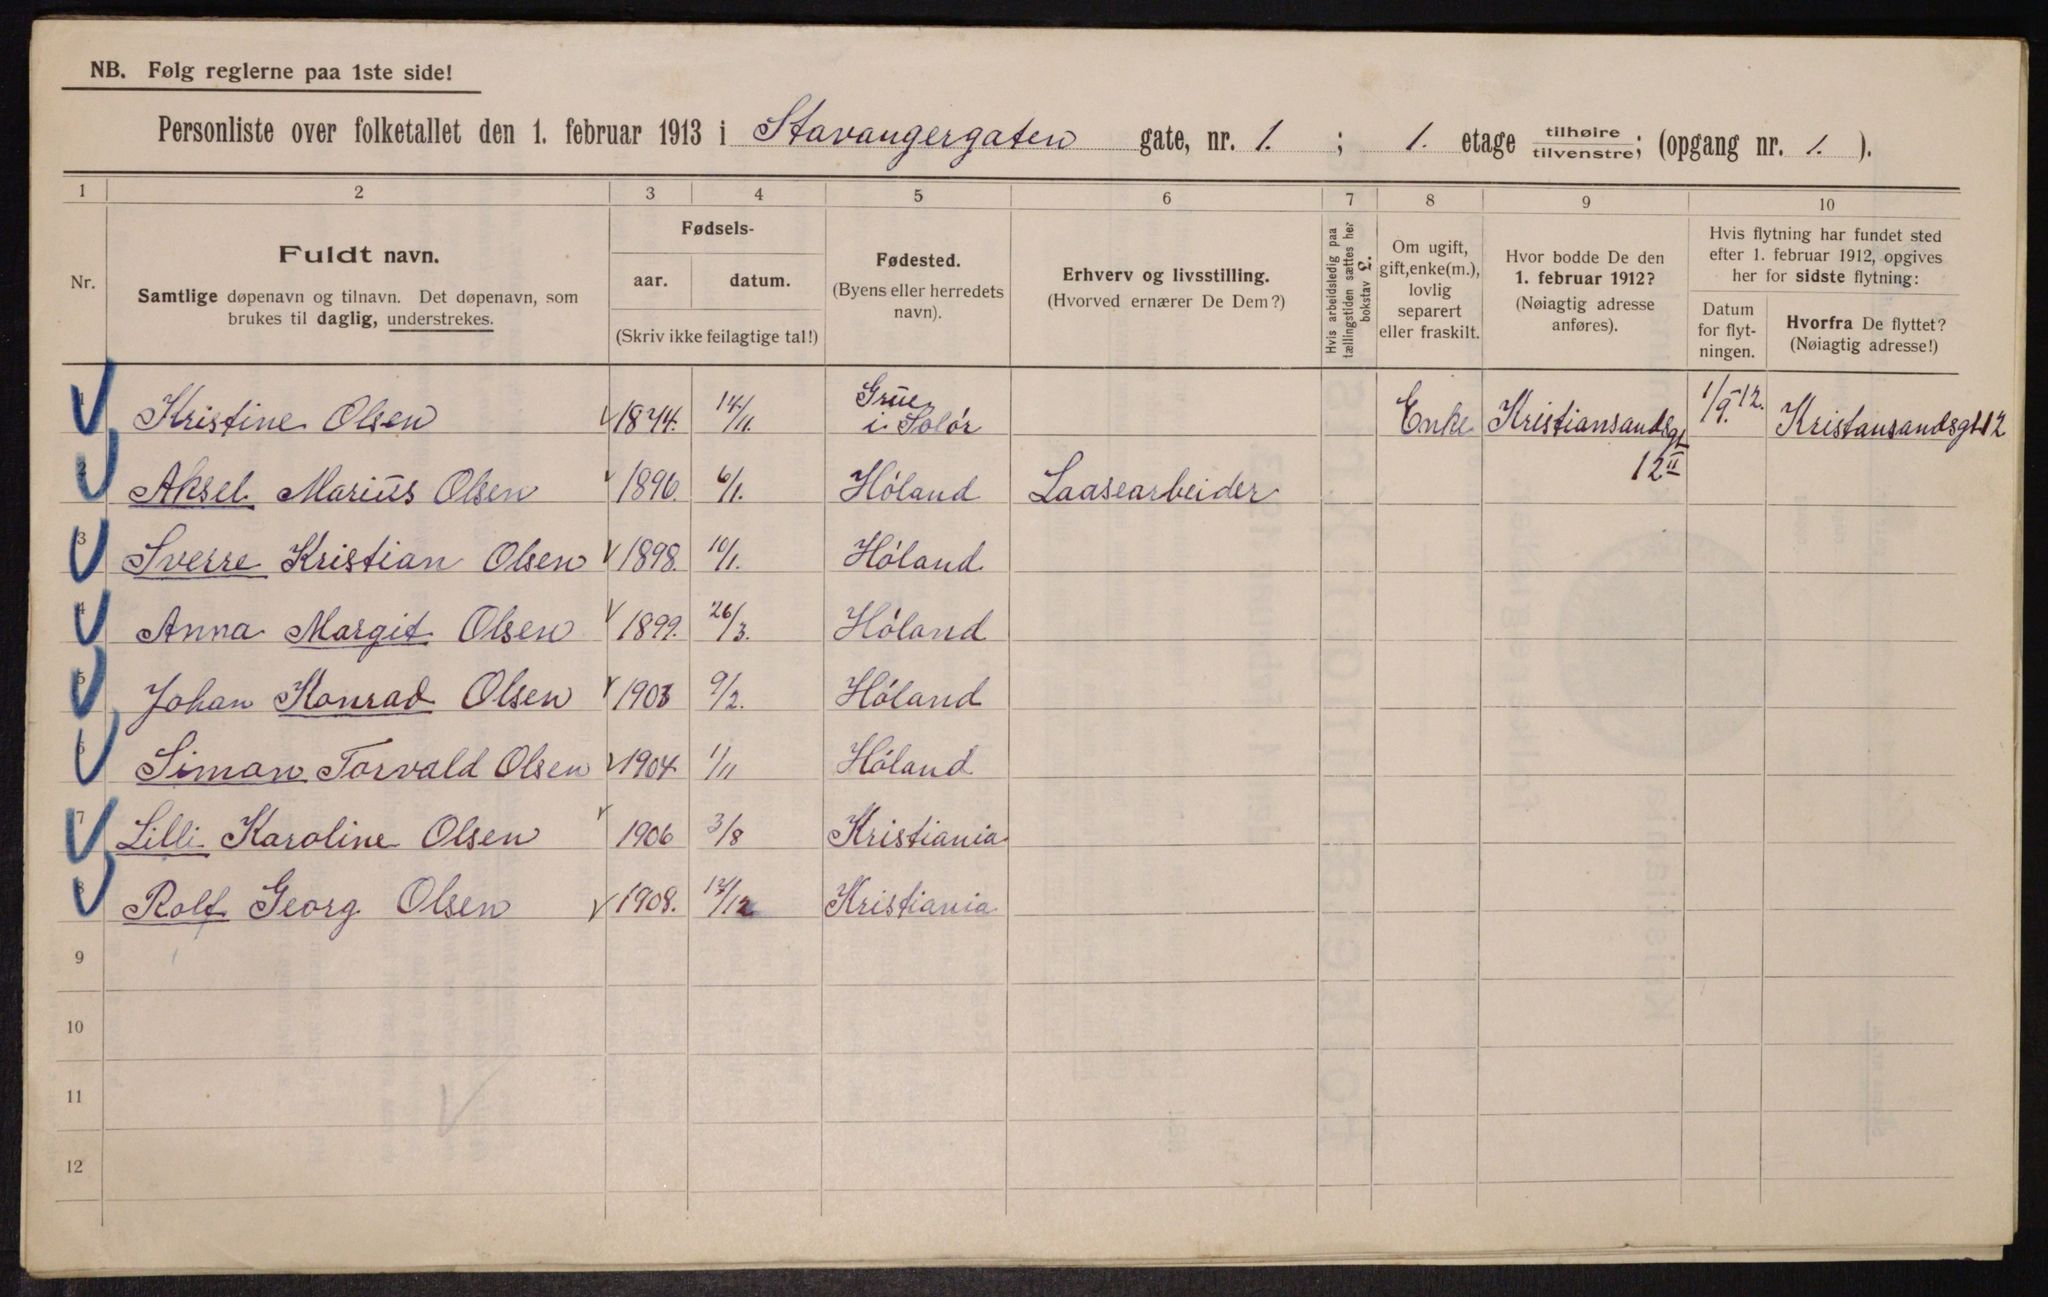 NB. Følg reglerne paa 1ste side!
Personliste over folketallet den 1. februar 1913 i Stavangergaten gate, nr. 1. ; 1. etage tilhøire tilvenstre; (opgang nr. 1. ).
1 2 3 4 5 6 7 8 9 10
Nr.
Fuldt navn.
Samtlige døpenavn og tilnavn. Det døpenavn, som
brukes til daglig, understrekes.
Fødsels-
aar. datum.
(Skriv ikke feilagtige tal!)
Fødested.
(Byens eller herredets
navn).
Erhverv og livsstilling.
(Hvorved ernærer De Dem?)
Hvis arbeidsledig paa
tællingstiden sættes her
bokstav L.
Om ugift,
gift, enke(m.),
lovlig
separert
eller fraskilt.
Hvor bodde De den
1. februar 1912?
(Nøiagtig adresse
anføres).
Hvis flytning har fundet sted
efter 1. februar 1912, opgives
her for sidste flytning:
Datum
for flyt-
ningen.
Hvorfra De flyttet?
(Nøiagtig adresse!)
1 Kristine Olsen 1874. 14/11. Grue i Solør Enke Kristiansandsgt 12 II 1/9.-12. Kristansandsgt 12
2 Aksel Marius Olsen 1896. 6/1. Høland Laasearbeider
3 Sverre Kristian Olsen 1898. 10/1. Høland
4 Anna Margit Olsen 1899. 26/3. Høland
5 Johan Konrad Olsen 1903 9/2. Høland
6 Simon Torvald Olsen 1904 1/11 Høland
7 Lilli Karoline Olsen 1906 3/8 Kristiania
8 Rolf Georg Olsen 1908. 17/12 Kristiania
9
10
11
12